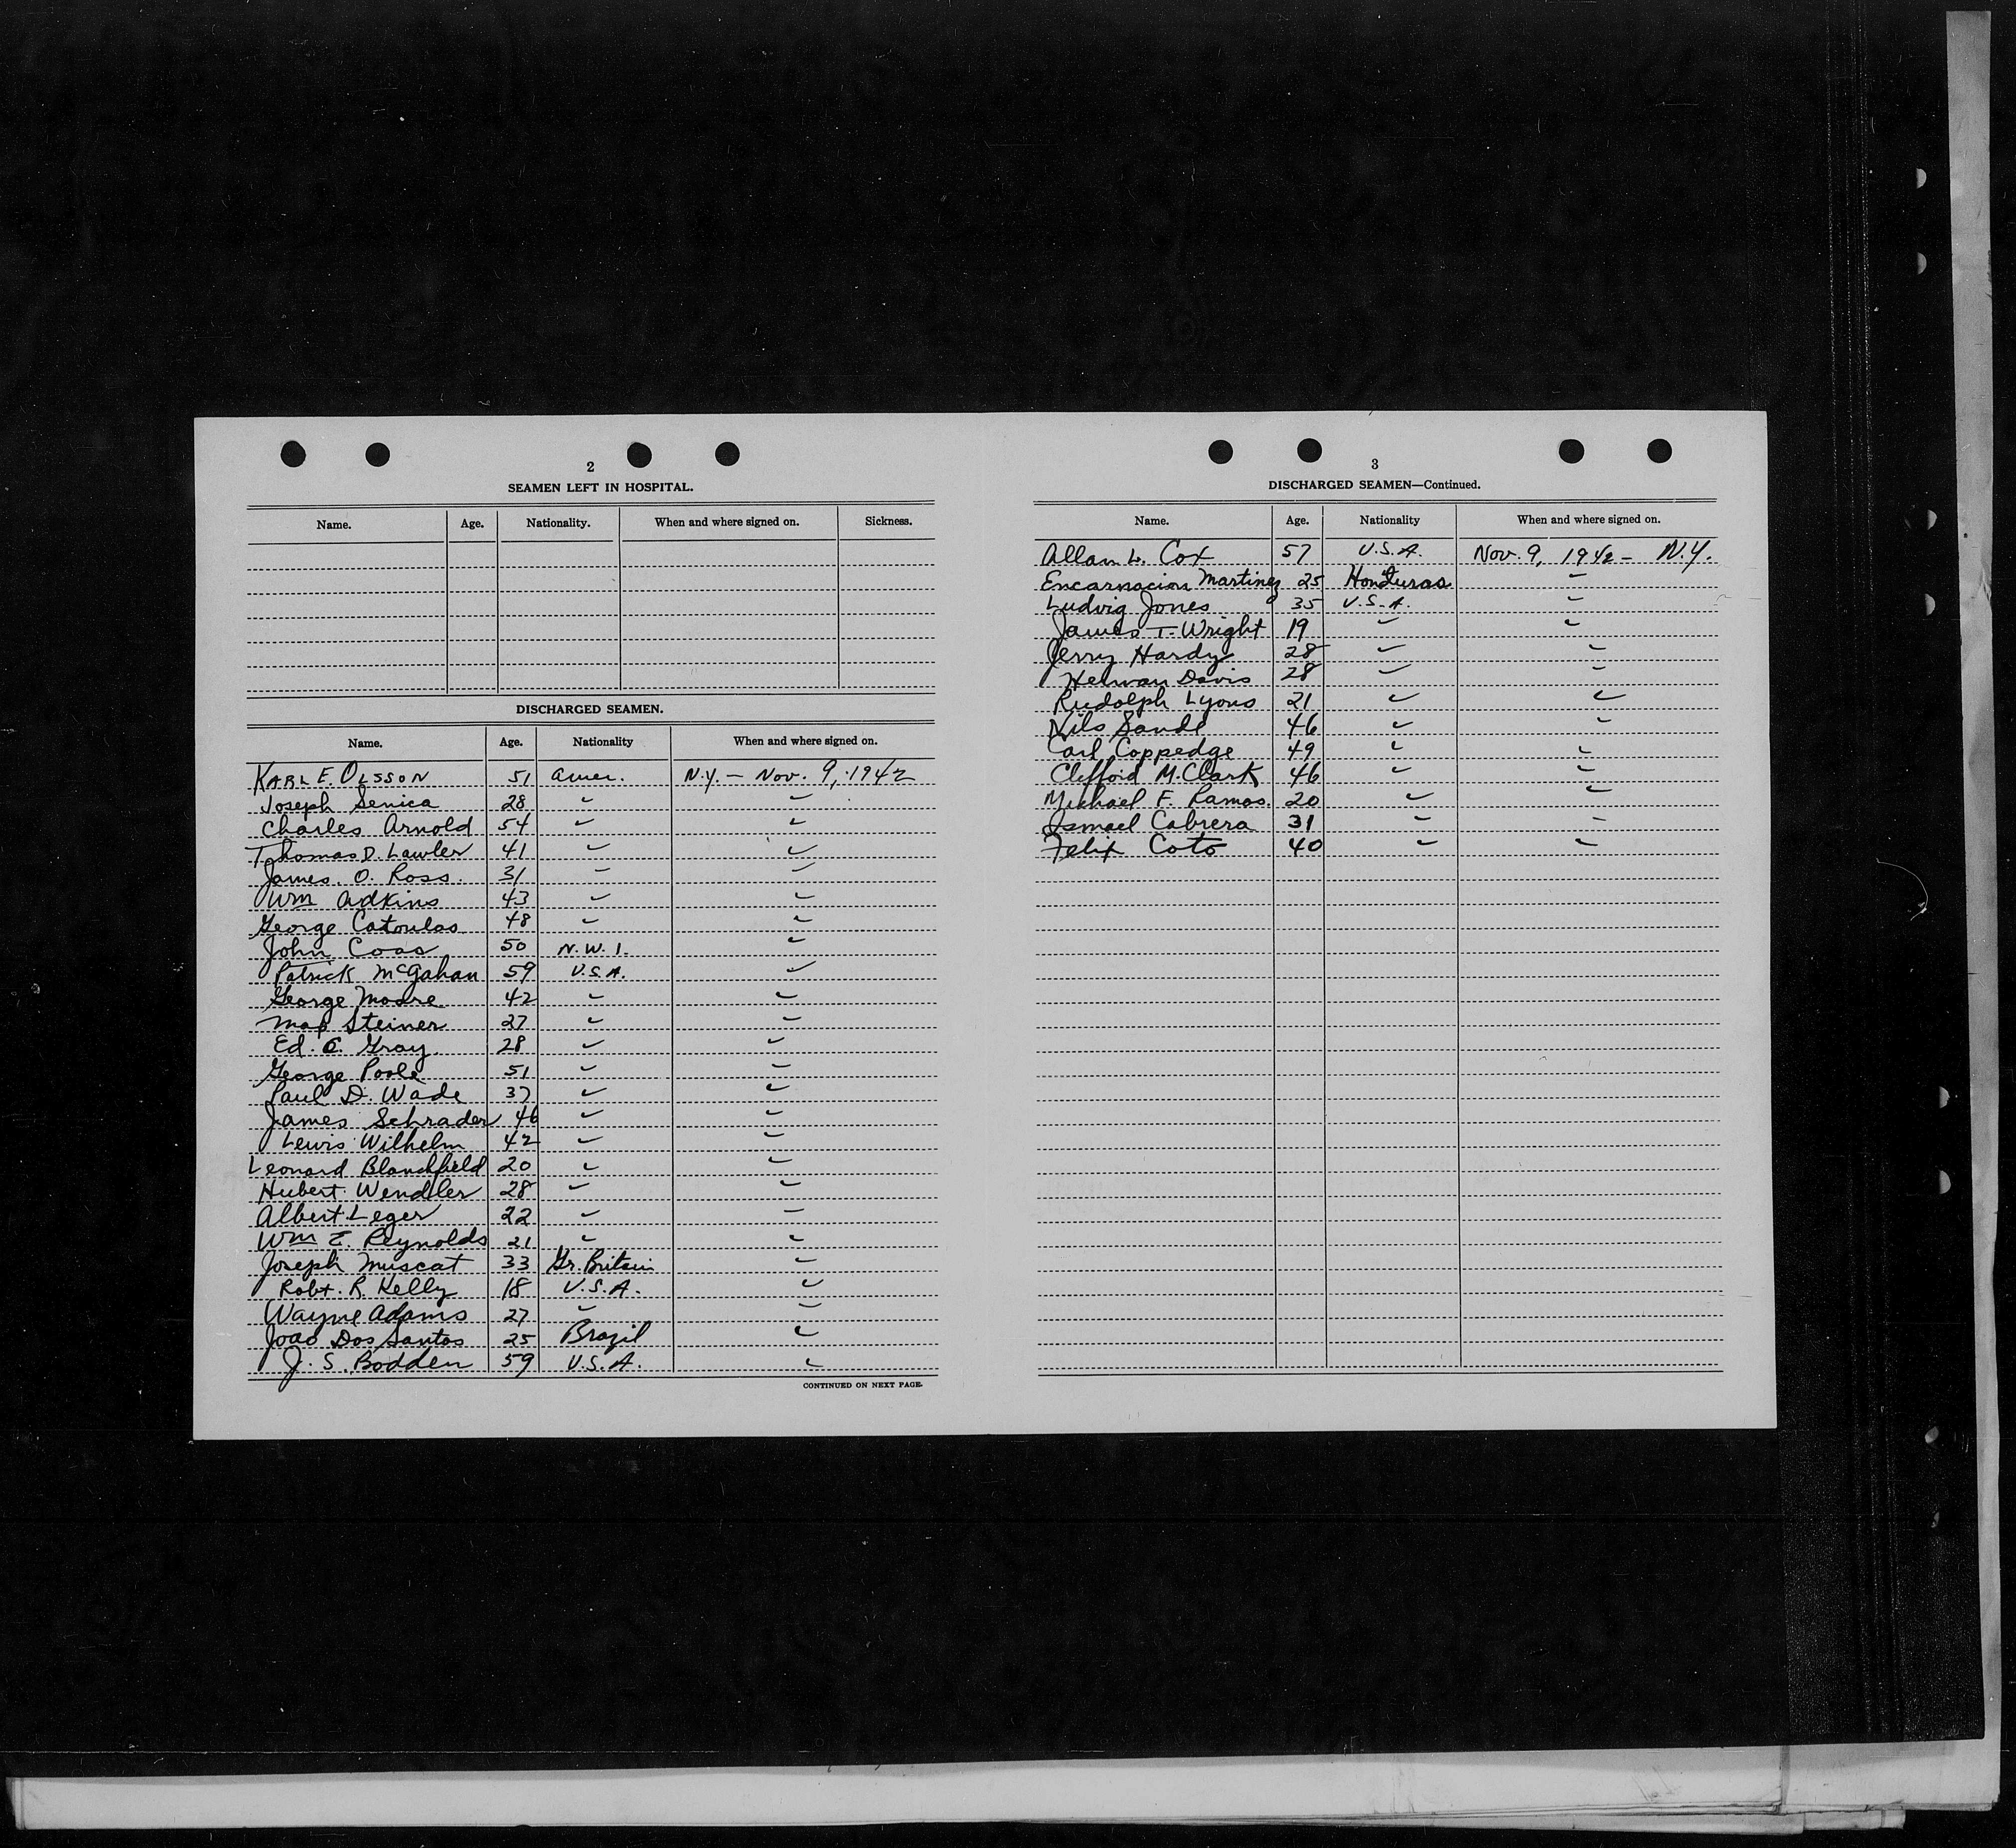 2
SEAMEN LEFT IN HOSPITAL.
Name. Age. Nationality. When and where signed on. Sickness.
DISCHARGED SEAMEN.
Name. Age. Nationality When and where signed on.
KARL E. OLSSON 51 Amer. N.Y. — Nov. 9, 1942
Joseph Senica 28 " "
Charles Arnold 54 " "
Thomas D. Lawler 41 " "
James O. Ross. 31 " "
Wm Adkins 43 " "
George Catoulas 48 " "
John Coas 50 N.W.I. "
Patrick McGahan 59 U.S.A. "
George Moore 42 " "
Max Steiner 27 " "
Ed. C. Gray. 28 " "
George Poole 51 " "
Paul D. Wade 37 " "
James Schrader 46 " "
Lewis Wilhelm 42 " "
Leonard Blanchfield 20 " "
Hubert Wendler 28 " "
Albert Leger 22 " "
Wm E. Reynolds 21 " "
Joseph Muscat 33 Gr. Britain "
Robt. R. Kelly 18 U.S.A. "
Wayne Adams 27 " "
Joao Dos Santos 25 Brazil "
J. S. Bodden 59 U.S.A. "
CONTINUED ON NEXT PAGE.
3
DISCHARGED SEAMEN—Continued.
Name. Age. Nationality When and where signed on.
Allan L. Cox 57 U.S.A. Nov. 9, 1942 — N.Y.
Encarnacion Martinez 25 Honduras "
Ludvig Jones 35 U.S.A. "
James T. Wright 19 " "
Jerry Hardy 28 " "
Davis 28 " "
Rudolph Lyons 21 " "
Nils Sande 46 " "
Carl Coppedge 49 " "
Clifford M. Clark 46 " "
Michael F. Ramos. 20 " "
Ismael Cabrera 31 " "
Felix Coto 40 " "